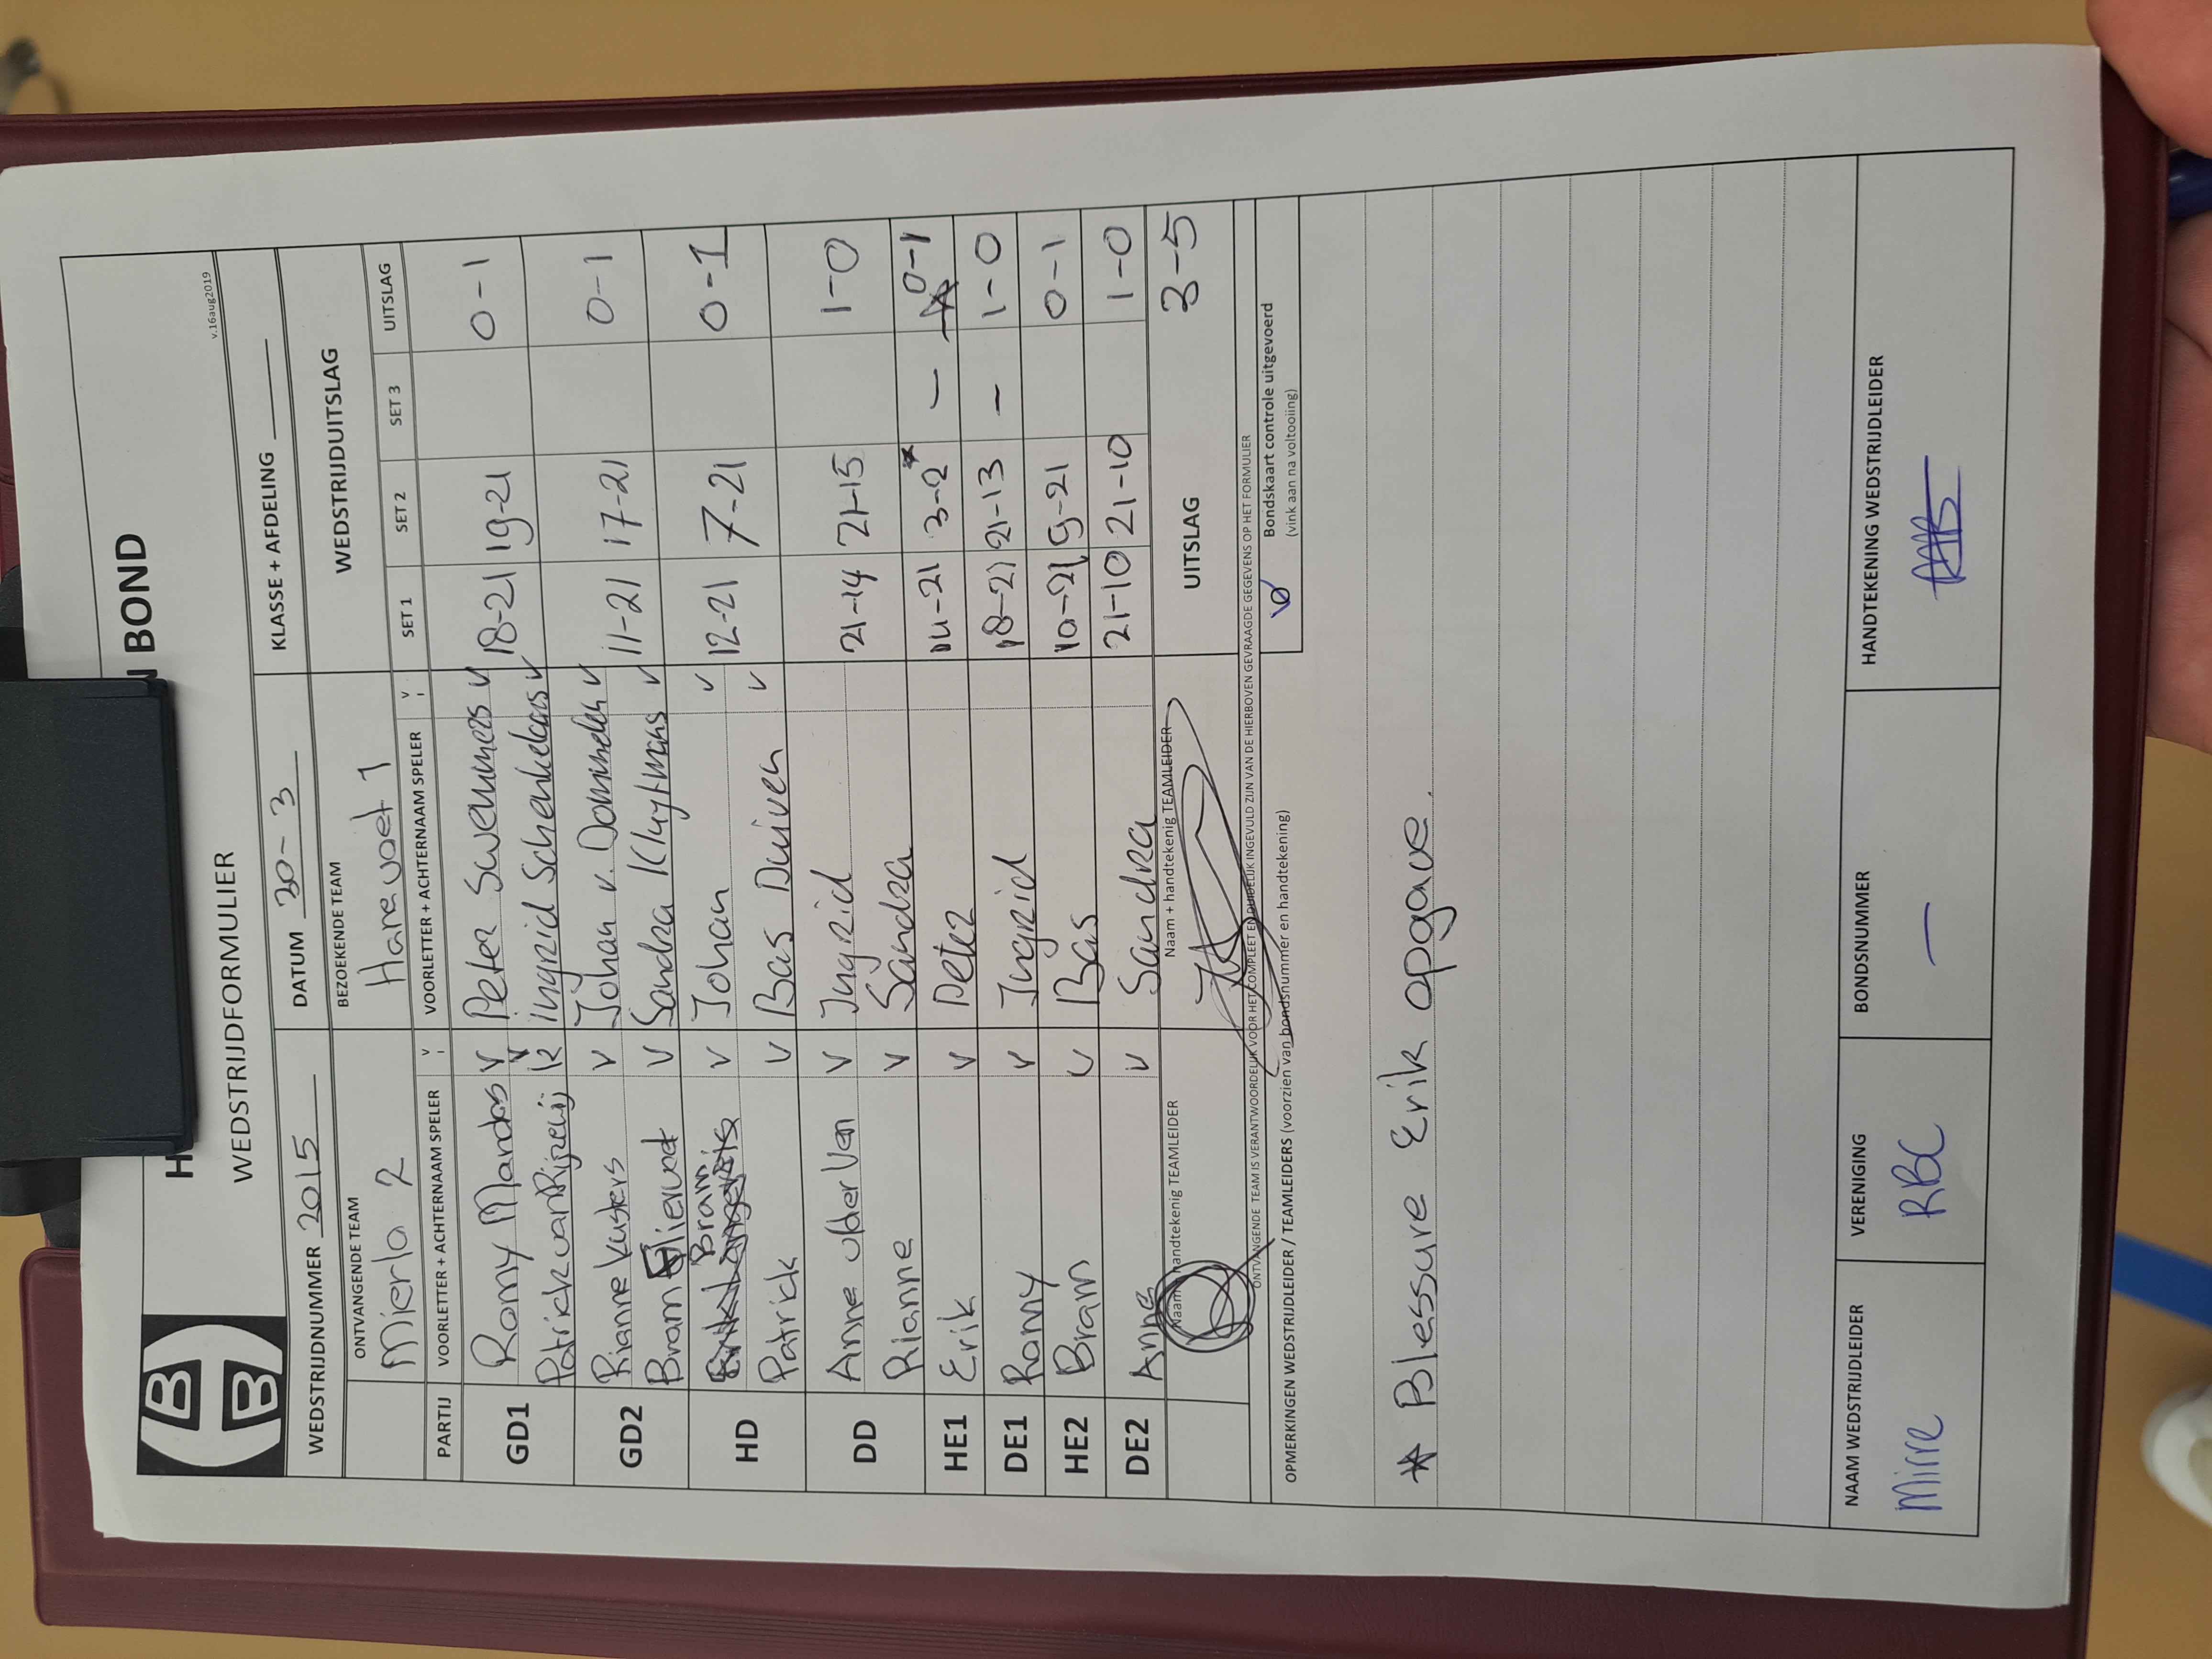 BOND
WEDSTRIJDFORMULIER
v.16aug2019
WEDSTRIJDNUMMER 2015 DATUM 30-3 KLASSE + AFDELING
ONTVANGENDE TEAM BEZOEKENDE TEAM WEDSTRIJDUITSLAG
Mierlo 2 Harevoet 1
PARTIJ VOORLETTER + ACHTERNAAM SPELER V VOORLETTER + ACHTERNAAM SPELER V SET 1 SET 2 SET 3 UITSLAG
GD1 Romy Mandos V Peter Swennnes V 18-21 19-21 0-1
Patrick van Rijzewij k V Ingrid Schenkelaars V
GD2 Rianne Kusters V Johan v. Dommelen V 11-21 17-21 0-1
Bram Slievat V Sandra Kluytmans V
HD Bram V Johan V 12-21 7-21 0-1
Patrick V Bas Duiven V
DD Anne v/der Ven V Ingrid 21-14 21-15 1-0
Rianne V Sandra
HE1 Erik V Peter 14-21 3-2* - 0-1
DE1 Romy V Ingrid 18-21 21-13 - 1-0
HE2 Bram V Bas 10-21 9-21 0-1
DE2 Anne V Sandra 21-10 21-10 1-0
Naam + handtekenig TEAMLEIDER Naam + handtekenig TEAMLEIDER UITSLAG 3-5
ONTVANGENDE TEAM IS VERANTWOORDELIJK VOOR HET COMPLEET EN DUIDELIJK INGEVULD ZIJN VAN DE HIERBOVEN GEVRAAGDE GEGEVENS OP HET FORMULIER
OPMERKINGEN WEDSTRIJDLEIDER / TEAMLEIDERS (voorzien van bondsnummer en handtekening)
Bondskaart controle uitgevoerd
(vink aan na voltooiing)
* Blessure Erik opgave.
NAAM WEDSTRIJDLEIDER VERENIGING BONDSNUMMER HANDTEKENING WEDSTRIJDLEIDER
Mirre RBC -